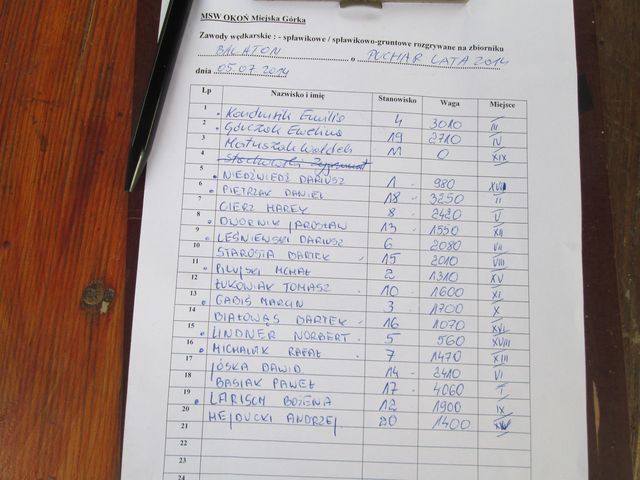 MSW OKOŃ Miejska Górka
Zawody wędkarskie : - spławikowe / spławikowo-gruntowe rozgrywane na zbiorniku
BALATON o PUCHAR LATA 2014
dnia 05.07.2014
Lp Nazwisko i imię Stanowisko Waga Miejsce
1 Emilia 4 3010 III
2 Ewelina 19 2710 IV
3 Matuszak Waldek M 0 XIX
4 Stachowski Zygmunt
5 NIEDŹWIEDŹ DARIUSZ 1 980 XVII
6 PIETRZAK DANIEL 18 3250 II
7 CIERZ MAREK 8 2420 V
8 DWORNIK JAROSŁAW 13 1550 XII
9 LEŚNIEWSKI DARIUSZ 6 2080 VII
10 STAROSTA BARTEK 15 2010 VIII
11 MICHAŁ 2 1310 XV
12 ŁUKOWIAK TOMASZ 10 1600 XI
13 GABIŚ MARCIN 3 1700 X
14 BIAŁOWĄS BARTEK 16 1070 XVI
15 LINDNER NORBERT 5 560 XVIII
16 MICHALAK RAFAŁ 7 1470 XIII
17 JÓSKA DAWID 14 2410 VI
18 BASIAK PAWEŁ 17 4060 I
19 LARISCH BOŻENA 12 1900 IX
20 HEJDUCKI ANDRZEJ 20 1400
21
22
23
24